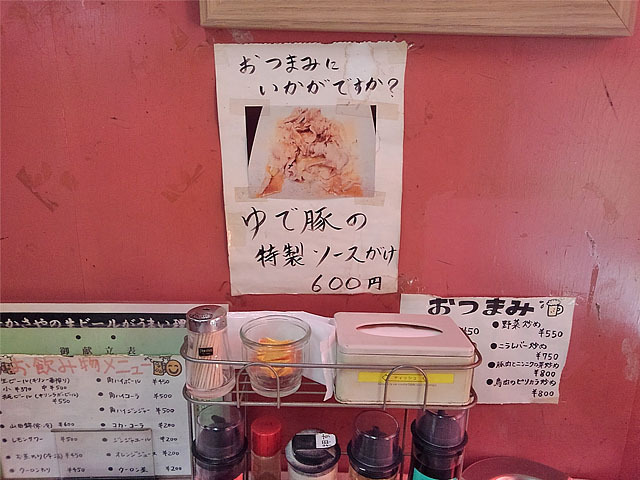 おつまみに
いかがですか?
ゆで豚の
特製ソースがけ
600円
おつまみ
450
●野菜炒め
¥550
●ニラレバー炒め
¥750
●豚肉とニンニクの芽炒め
¥800
●鳥肉のピリカラ炒め
¥800
かきやの生ビールがうまい
御献立表
お飲み物メニュー
角ハイボール ¥450
角ハイコーラ ¥500
角ハイジンジャー ¥500
コカ・コーラ ¥200
ジンジャエール ¥200
オレンジジュース ¥200
ウーロン茶 ¥200
¥600
レモンサワー ¥500
¥450
ウーロンハイ ¥450